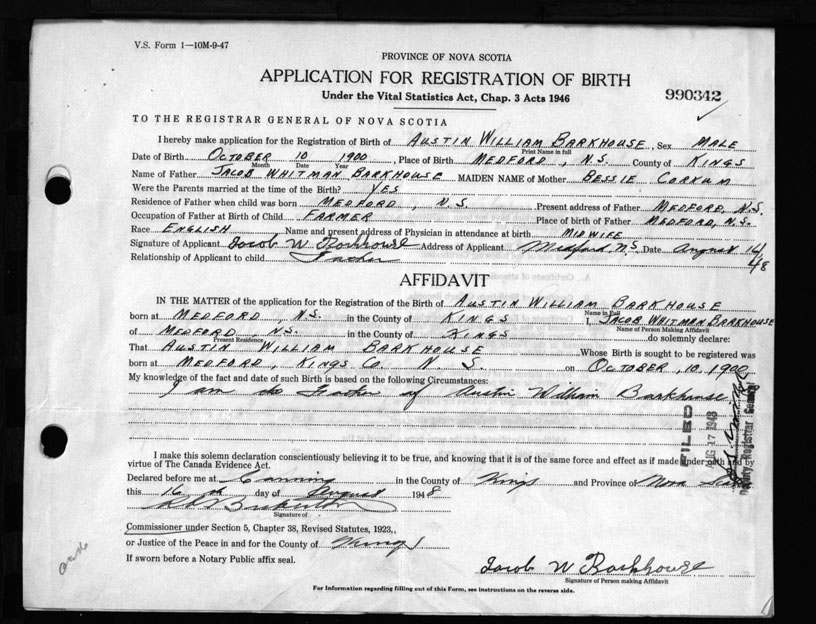 V.S. Form 1—10M-9-47
PROVINCE OF NOVA SCOTIA
APPLICATION FOR REGISTRATION OF BIRTH
Under the Vital Statistics Act, Chap. 3 Acts 1946
990342
TO THE REGISTRAR GENERAL OF NOVA SCOTIA
I hereby make application for the Registration of Birth of AUSTIN WILLIAM BARKHOUSE, Sex MALE
Print Name in full
Date of Birth OCTOBER 10 1900, Place of Birth MEDFORD, N.S. County of KINGS
Month Date Year
Name of Father JACOB WHITMAN BARKHOUSE MAIDEN NAME of Mother BESSIE CORKUM
Were the Parents married at the time of the Birth? YES
Residence of Father when child was born MEDFORD, N.S Present address of Father MEDFORD, N.S.
Occupation of Father at Birth of Child FARMER Place of birth of Father MEDFORD, N.S.
Race ENGLISH Name and present address of Physician in attendance at birth MIDWIFE
Signature of Applicant Jacob W Barkhouse Address of Applicant Medford, N.S. Date August 16/48
Relationship of Applicant to child Father
AFFIDAVIT
IN THE MATTER of the application for the Registration of the Birth of AUSTIN WILLIAM BARKHOUSE
Name in Full
born at MEDFORD, N.S. in the County of KINGS I, JACOB WHITMAN BARKHOUSE
Name of Person Making Affidavit
of MEDFORD, N.S. in the County of KINGS do solemnly declare:
Present Residence
That AUSTIN WILLIAM BARKHOUSE Whose Birth is sought to be registered was
born at MEDFORD, KINGS CO. N.S. on OCTOBER, 10, 1900,
My knowledge of the fact and date of such Birth is based on the following Circumstances:
I am the Father of Austin William Barkhouse
FILED
AUG 17 1948
Deputy Registrar General
I make this solemn declaration conscientiously believing it to be true, and knowing that it is of the same force and effect as if made under oath and by
virtue of The Canada Evidence Act.
Declared before me at Canning in the County of Kings and Province of Nova Scotia
this 16 th day of August 1948
Signature of
Commissioner under Section 5, Chapter 38, Revised Statutes, 1923,,
or Justice of the Peace in and for the County of Kings
If sworn before a Notary Public affix seal.
Jacob W Barkhouse
Signature of Person making Affidavit
For Information regarding filling out of this Form, see instructions on the reverse side.